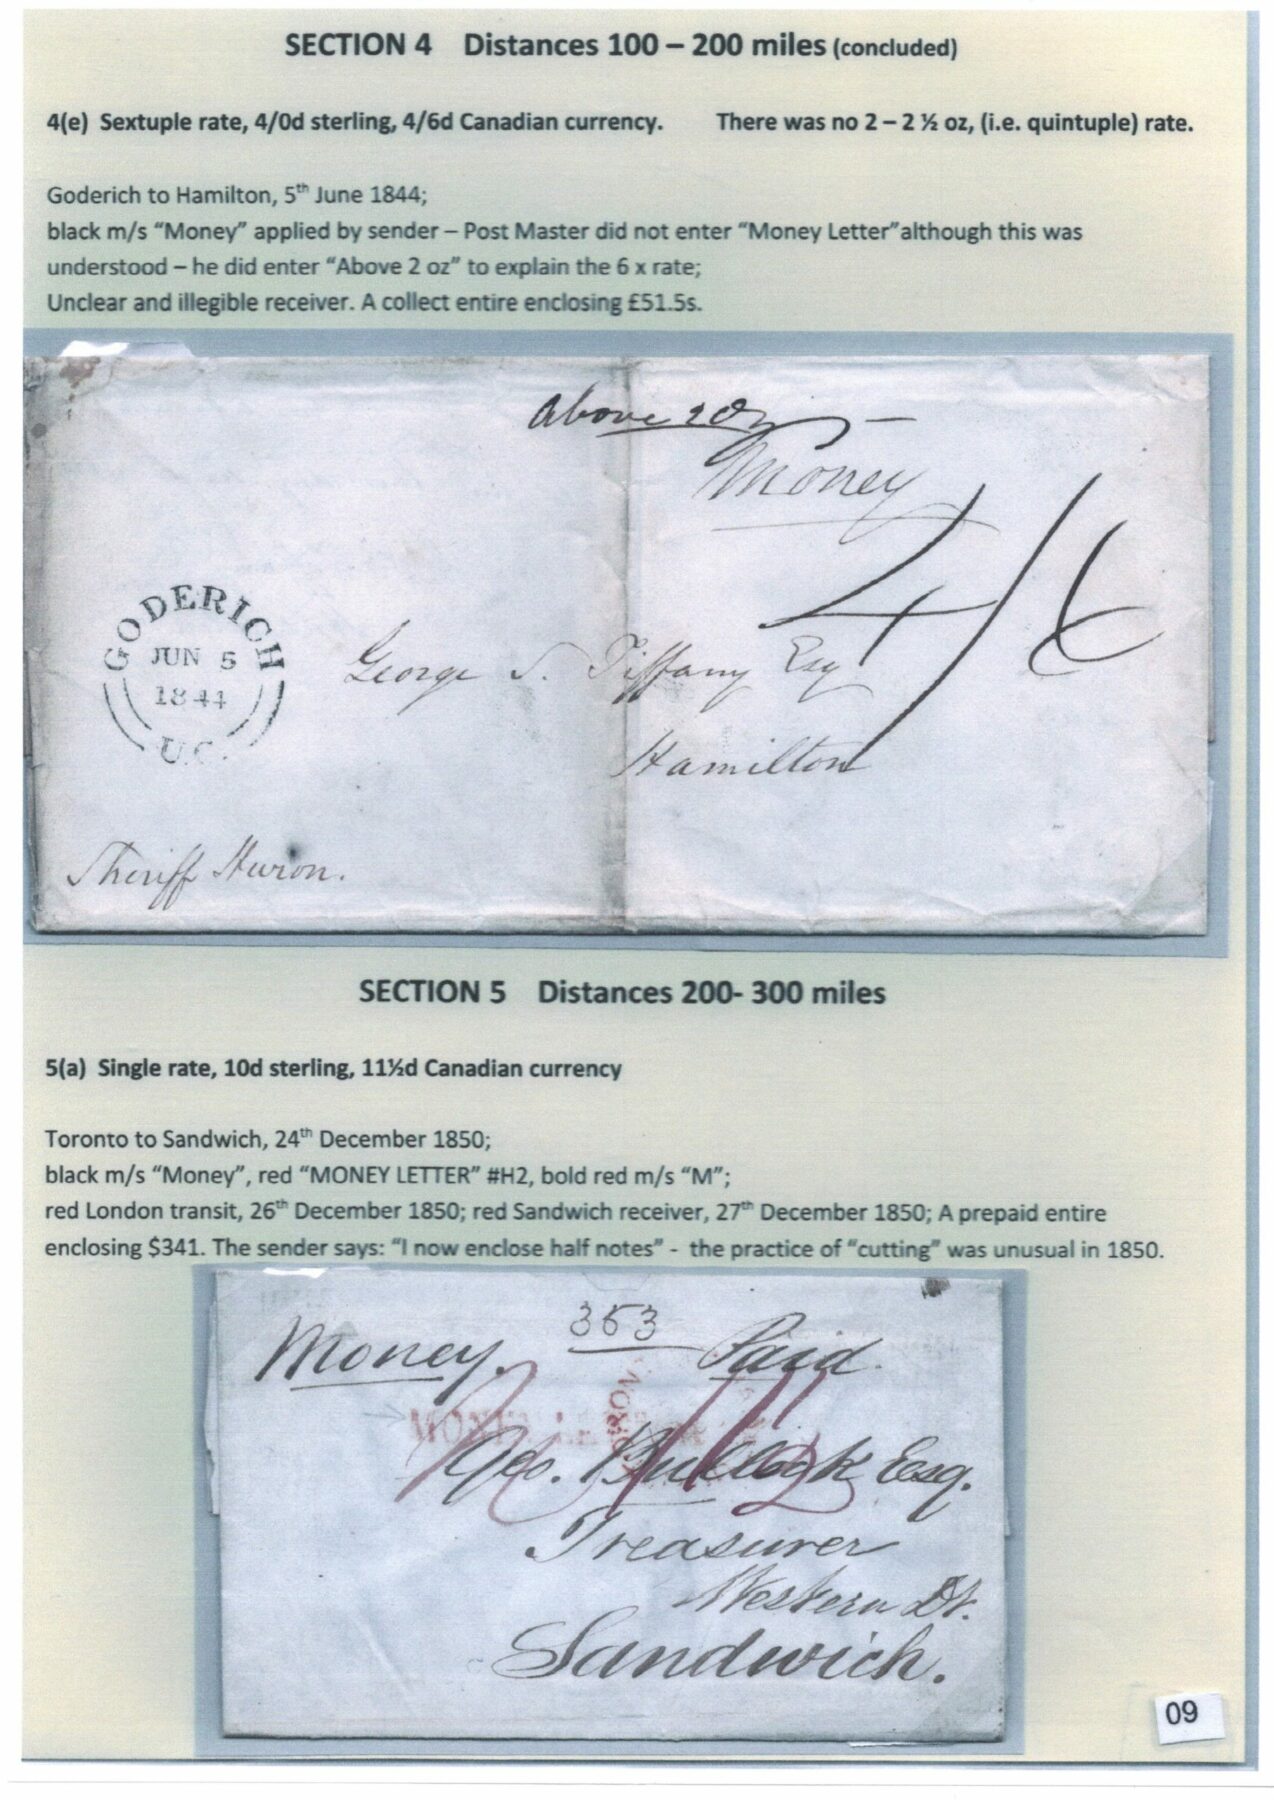 SECTION 4 Distances 100 – 200 miles (concluded)
4(e) Sextuple rate, 4/0d sterling, 4/6d Canadian currency. There was no 2 – 2 ½ oz, (i.e. quintuple) rate.
Goderich to Hamilton, 5th June 1844;
black m/s “Money” applied by sender – Post Master did not enter “Money Letter”although this was
understood – he did enter “Above 2 oz” to explain the 6 x rate;
Unclear and illegible receiver. A collect entire enclosing £51.5s.
Above 2 oz
Money
4/6
GODERICH
JUN 5
1844
U.C.
George S. Tiffany Esq
Hamilton
Sheriff Huron.
SECTION 5 Distances 200- 300 miles
5(a) Single rate, 10d sterling, 11½d Canadian currency
Toronto to Sandwich, 24th December 1850;
black m/s “Money”, red “MONEY LETTER” #H2, bold red m/s “M”;
red London transit, 26th December 1850; red Sandwich receiver, 27th December 1850; A prepaid entire
enclosing $341. The sender says: “I now enclose half notes” - the practice of “cutting” was unusual in 1850.
353
Money. Paid.
MONEY LETTER
M 11½
Geo. Bullock Esq.
Treasurer
Western Dt.
Sandwich.
09